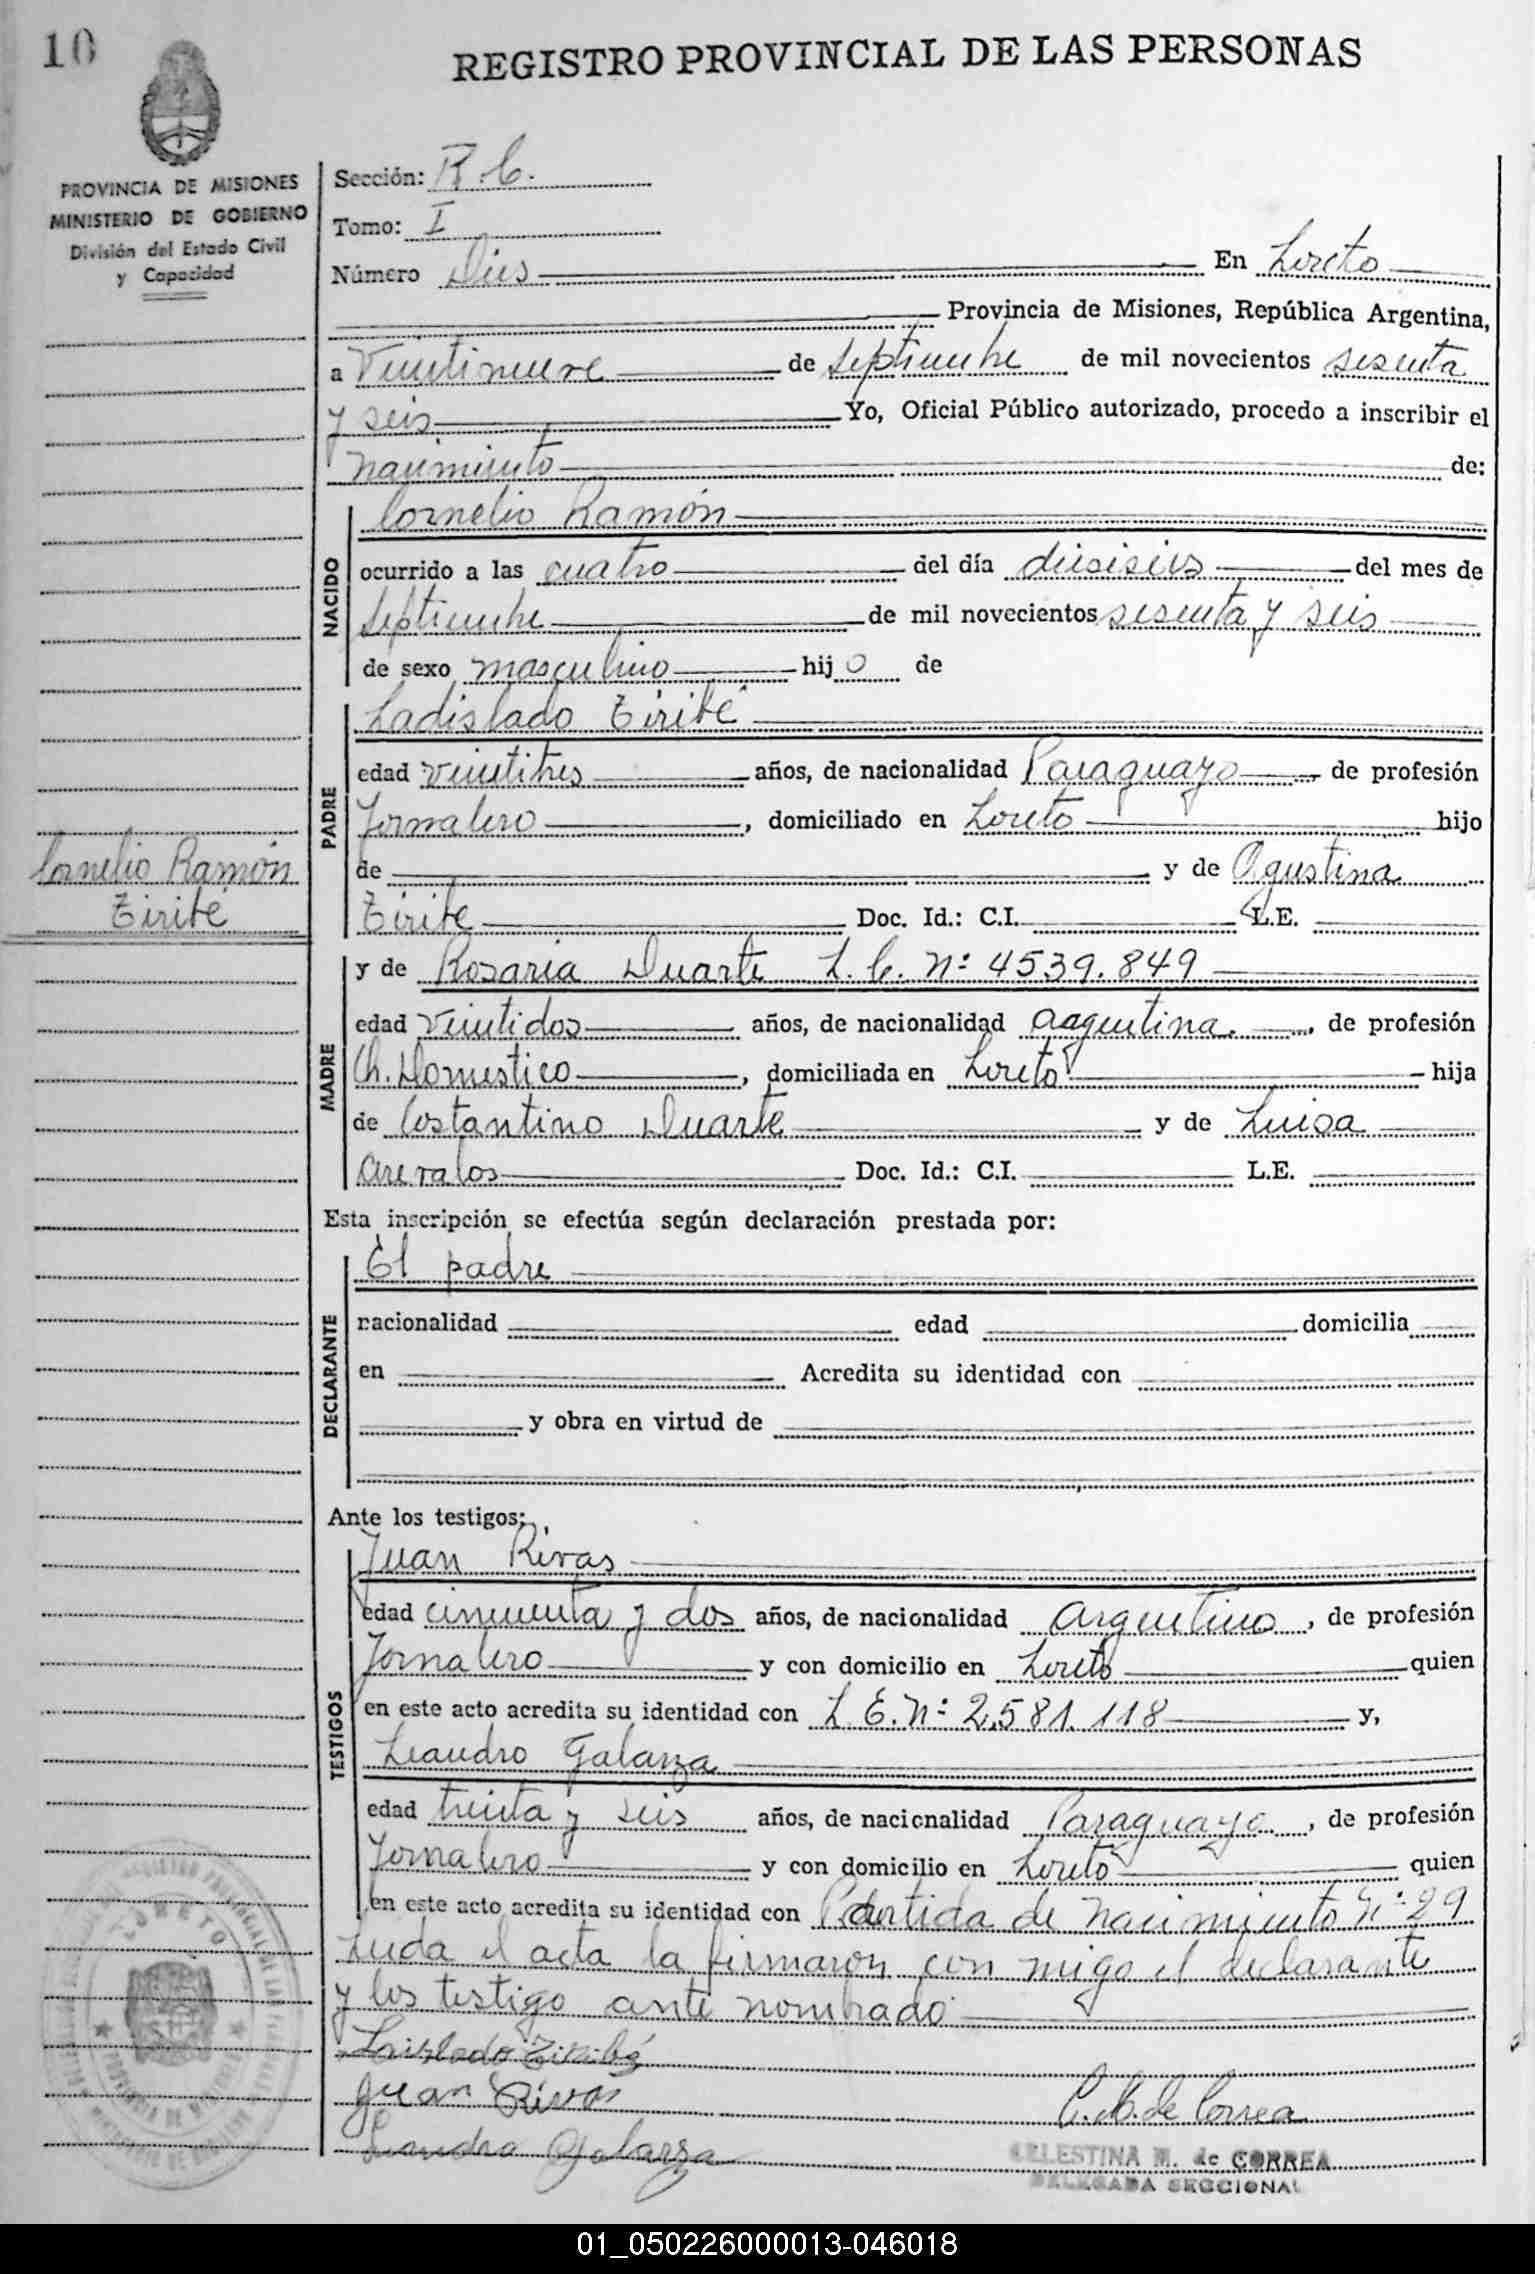 10
REGISTRO PROVINCIAL DE LAS PERSONAS
PROVINCIA DE MISIONES
MINISTERIO DE GOBIERNO
División del Estado Civil
y Capacidad
Sección: R.C.
Tomo: I
Número Dies En Loreto
Provincia de Misiones, República Argentina,
a Veintinueve de septiembre de mil novecientos sesenta
y seis Yo, Oficial Público autorizado, procedo a inscribir el
nacimiento de:
Cornelio Ramón
NACIDO
ocurrido a las cuatro del día diesiseis del mes de
septiembre de mil novecientos sesenta y seis
de sexo masculino hijo de
Ladislado Tiribé
PADRE
edad veintitres años, de nacionalidad Paraguayo de profesión
Jornalero, domiciliado en Loreto hijo
de y de Agustina
Tiribe Doc. Id.: C.I. L.E.
Cornelio Ramón
Tiribé
y de Rosaria Duarte L.C. Nº 4539.849
MADRE
edad veintidos años, de nacionalidad argentina. de profesión
Qh. Domestico, domiciliada en Loreto hija
de Costantino Duarte y de Luisa
Arevalos Doc. Id.: C.I. L.E.
Esta inscripción se efectúa según declaración prestada por:
El padre
DECLARANTE
nacionalidad edad domicilia
en Acredita su identidad con
y obra en virtud de
Ante los testigos:
Juan Rivas
TESTIGOS
edad cincuenta y dos años, de nacionalidad argentino, de profesión
Jornalero y con domicilio en Loreto quien
en este acto acredita su identidad con L.E. Nº 2.581.118 y,
Leandro Galarza
edad treinta y seis años, de nacionalidad Paraguayo, de profesión
Jornalero y con domicilio en Loreto quien
en este acto acredita su identidad con Partida de nacimiento Nº 29
Leida el acta la firmaron con migo el declarante
y los testigo ante nombrado
Laislado Tiribé
Juan Rivas
C.M. de Correa
Leandro Galarza
CELESTINA M. de CORREA
DELEGADA SECCIONAL
LORETO
PROVINCIA DE MISIONES
01_050226000013-046018